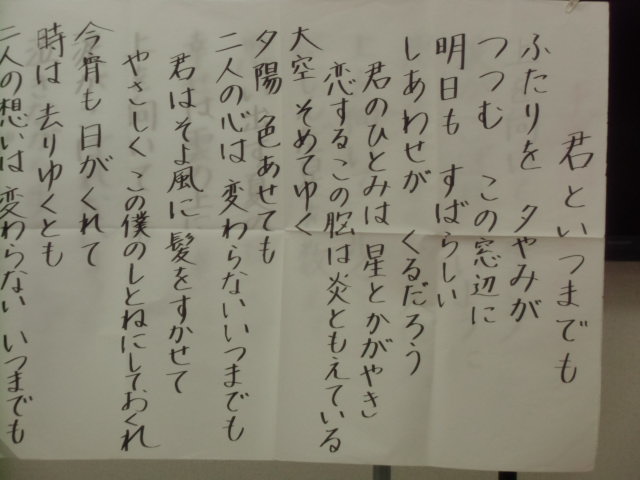 君といつまでも
ふたりを 夕やみが
つつむ この窓辺に
明日も すばらしい
しあわせが くるだろう
君のひとみは 星とかがやき
恋するこの胸は 炎ともえている
大空 そめてゆく
夕陽 色あせても
二人の心は 変わらない いつまでも
君はそよ風に 髪をすかせて
やさしく この僕のしとねにしておくれ
今宵も 日がくれて
時は 去りゆくとも
二人の想いは 変わらない いつまでも